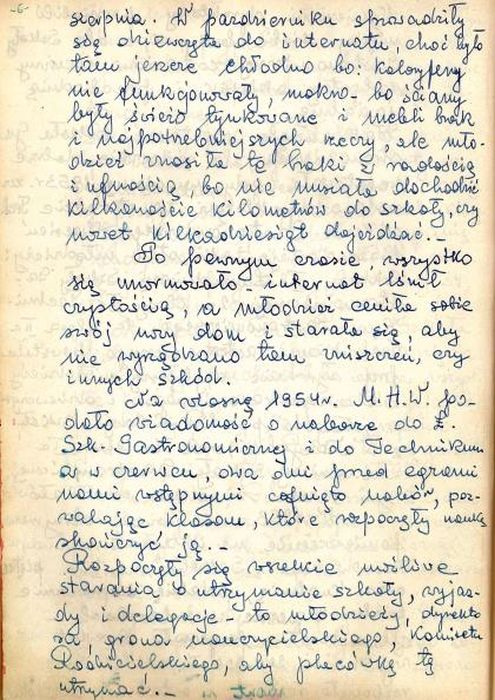 -6-
sierpnia. W październiku sprowadziły
się dziewczęta do internatu, choć było
tam jeszcze chłodno bo: kaloryfery
nie funkcjonowały, mokro - bo ściany
były świeżo tynkowane i mebli brak
i najpotrzebniejszych rzeczy, ale mło-
dzież znosiła te braki z radością
i ufnością, bo nie musiała dochodzić
kilkanaście kilometrów do szkoły, czy
nawet kilkadziesiąt dojeżdżać. -
Po pewnym czasie, wszystko
się unormowało - internat lśnił
czystością, a młodzież ceniła sobie
swój nowy dom i starała się, aby
nie wyrządzano tam zniszczeń, czy
innych szkód.
Na wiosnę 1954r. M.H.W. po-
dało wiadomość o naborze do Z.
Szk. Gastronomicznej i do Technikum
a w czerwcu, dwa dni przed egzami
nami wstępnymi cofnięto nabór, poz-
walając klasom, które rozpoczęły naukę
skończyć ją. -
Rozpoczęły się wszelkie możliwe
starania o utrzymanie szkoły, wyjaz-
dy i delegacje - to młodzieży, dyrekto
ra, grona nauczycielskiego, Komitetu
Rodzicielskiego, aby placówkę tę
utrzymać. -